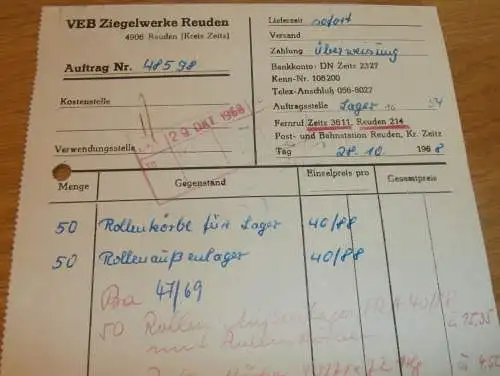 VEB Ziegelwerke Reuden
4906 Reuden (Kreis Zeitz)
Auftrag Nr. 48598
Kostenstelle
29. OKT. 1968
Verwendungsstelle
Lieferzeit sofort
Versand
Zahlung Überweisung
Bankkonto: DN Zeitz 2327
Kenn-Nr. 108200
Telex-Anschluß 056-8027
Auftragsstelle Lager
Fernruf Zeitz 3611, Reuden 214
Post- und Bahnstation Reuden, Kr. Zeitz
Tag 28.10. 1968
Menge Gegenstand Einzelpreis pro Gesamtpreis
50 Rollenkörbe für Lager 40/88
50 Rollenaußenlager 40/88
47/69
50 Rollen